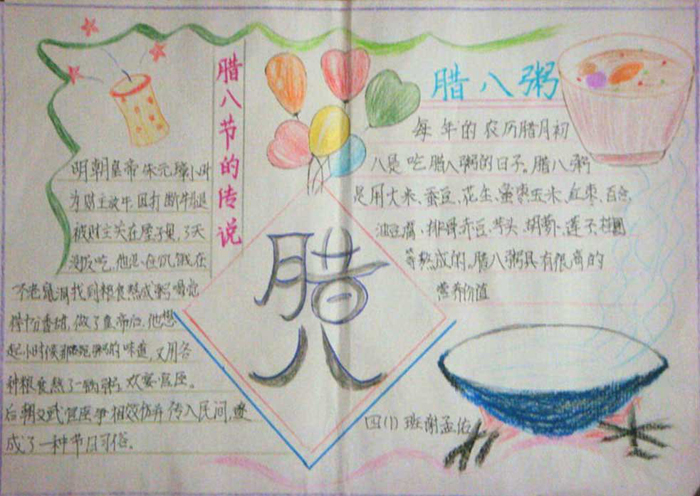 腊八节的传说
明朝皇帝朱元璋小时
为财主放牛,因打断牛腿
被财主关在屋子里,3天
没饭吃,他
老鼠洞找到粮食熬成粥
得十分香甜,做了皇帝后,他想
起小时候的味道,又用各
种粮食熬了一锅粥,欢宴
后朝文武相效仿并传入民间,遂
成了一种节日习俗。
腊八
腊八粥
每年的农历腊月初
八是吃腊八粥的日子。腊八粥
是用大米、蚕豆、花生、玉米、红枣、百合、
油豆腐、排骨、赤豆、芋头、胡萝卜、莲子、桂圆
等熬成的,腊八粥具有很高的
营养价值
四(1)班谢孟佑